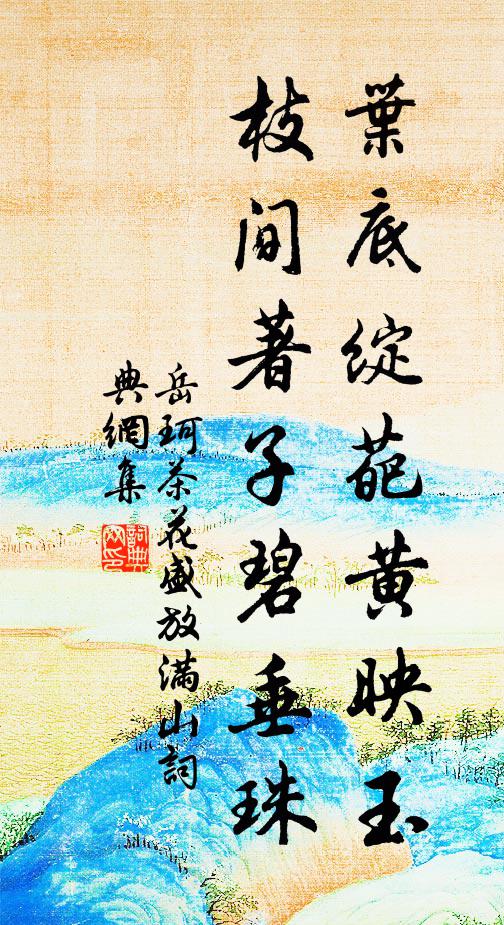 葉底綻葩黃映玉
枝間著子碧垂珠
岳珂茶花盛放滿山詞
典網集
詞典